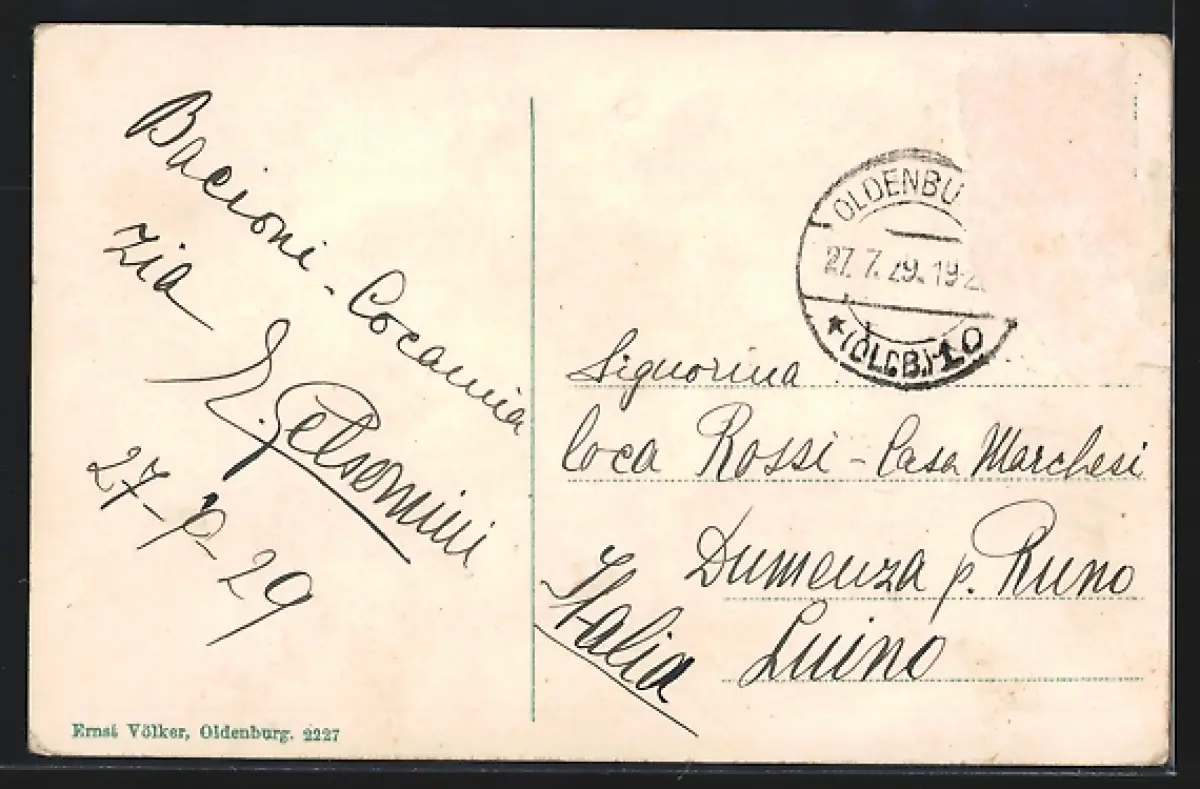 Bacioni - Cocamia
Zia
L. Gelsomini
27-7-29
Ernst Völker, Oldenburg. 2227
OLDENBU
27.7.29.19-2
* (OLDB.) 1 o
Signorina
Coca Rossi - Casa Marchesi
Dumenza p. Runo
Luino
Italia